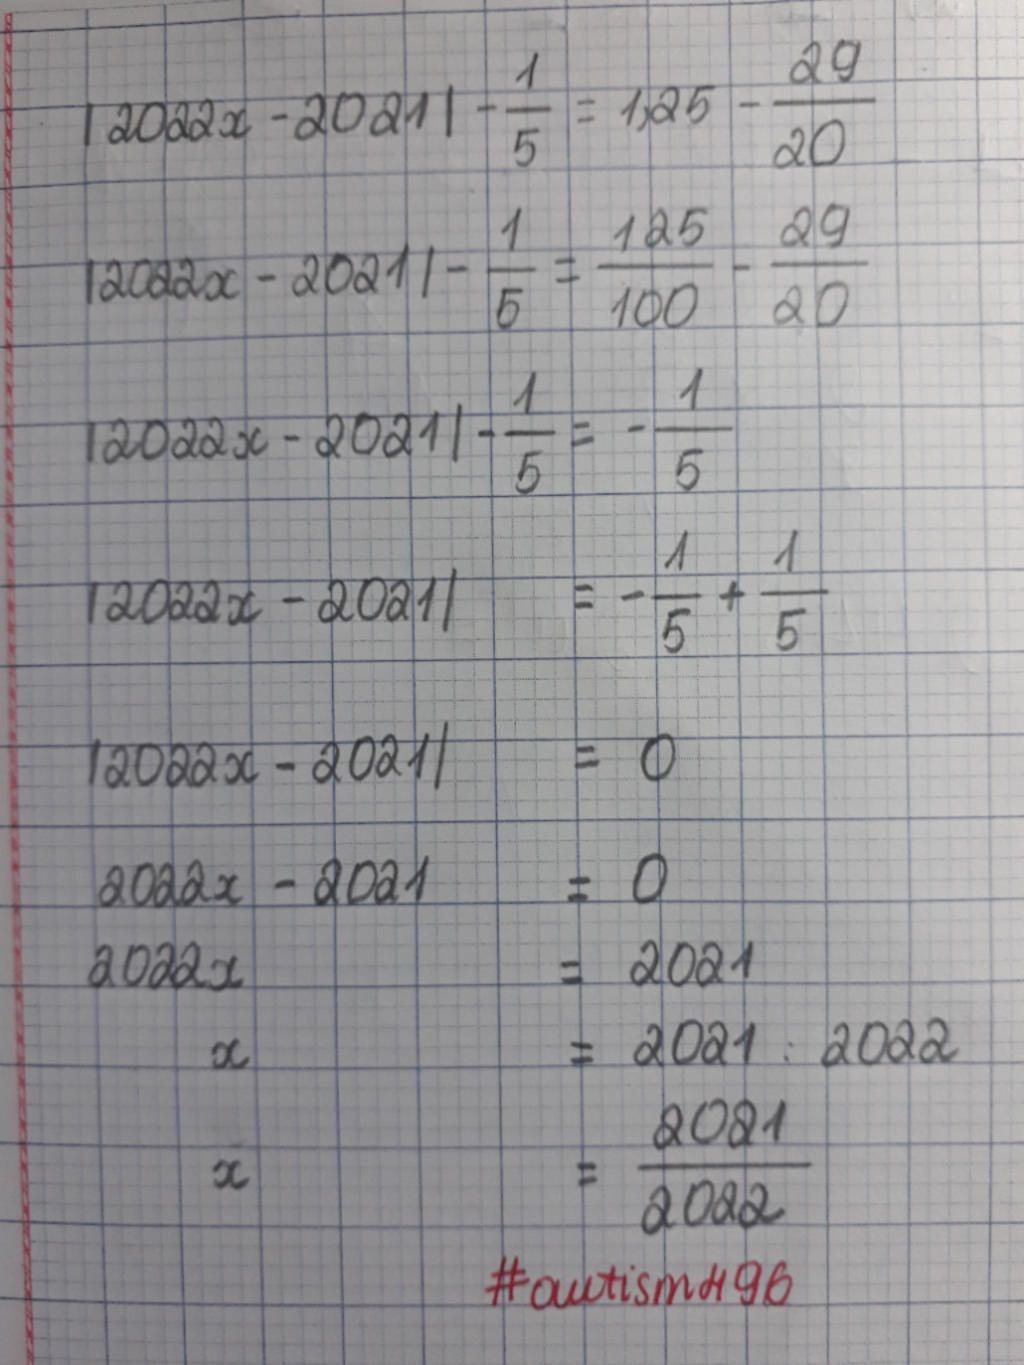 |2022x - 2021| - 1/5 = 1,25 - 29/20
|2022x - 2021| - 1/5 = 125/100 - 29/20
|2022x - 2021| - 1/5 = - 1/5
|2022x - 2021| = - 1/5 + 1/5
|2022x - 2021| = 0
2022x - 2021 = 0
2022x = 2021
x = 2021 : 2022
x = 2021/2022
#autismn96